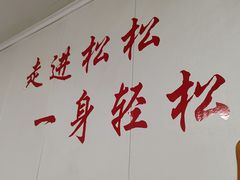 走进松松
一身轻松